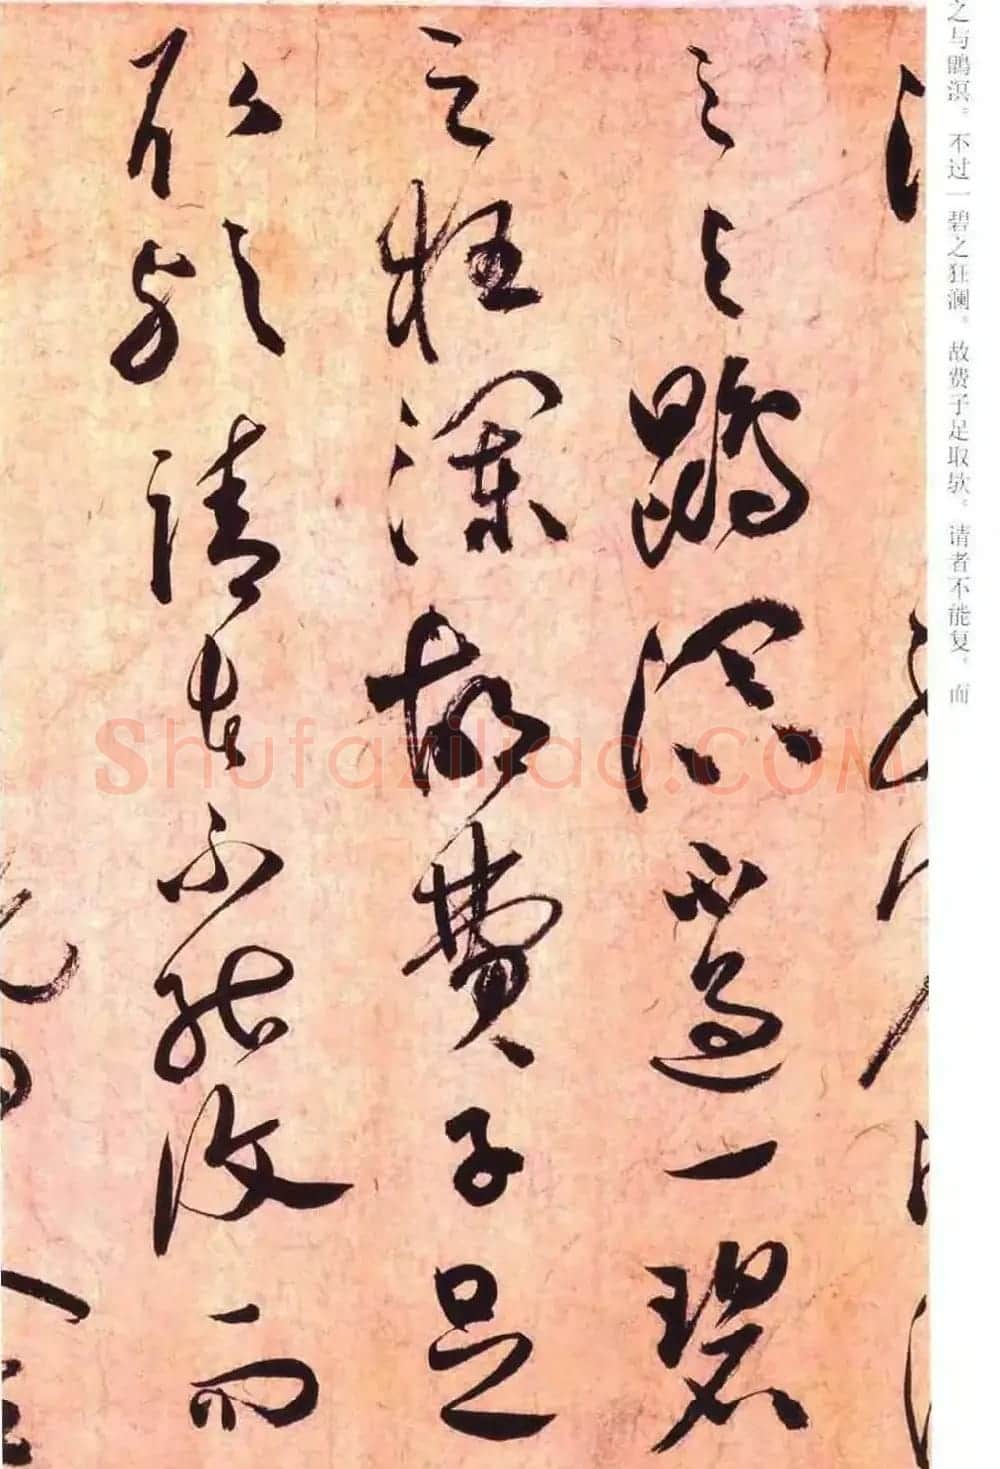 之与鹍溟。不过一碧之狂澜。故费子足取欤。请者不能复。而
之与鵾溟不過一碧
之狂瀾故費子足
取欤請者不能復而
Shufaziliao.COM